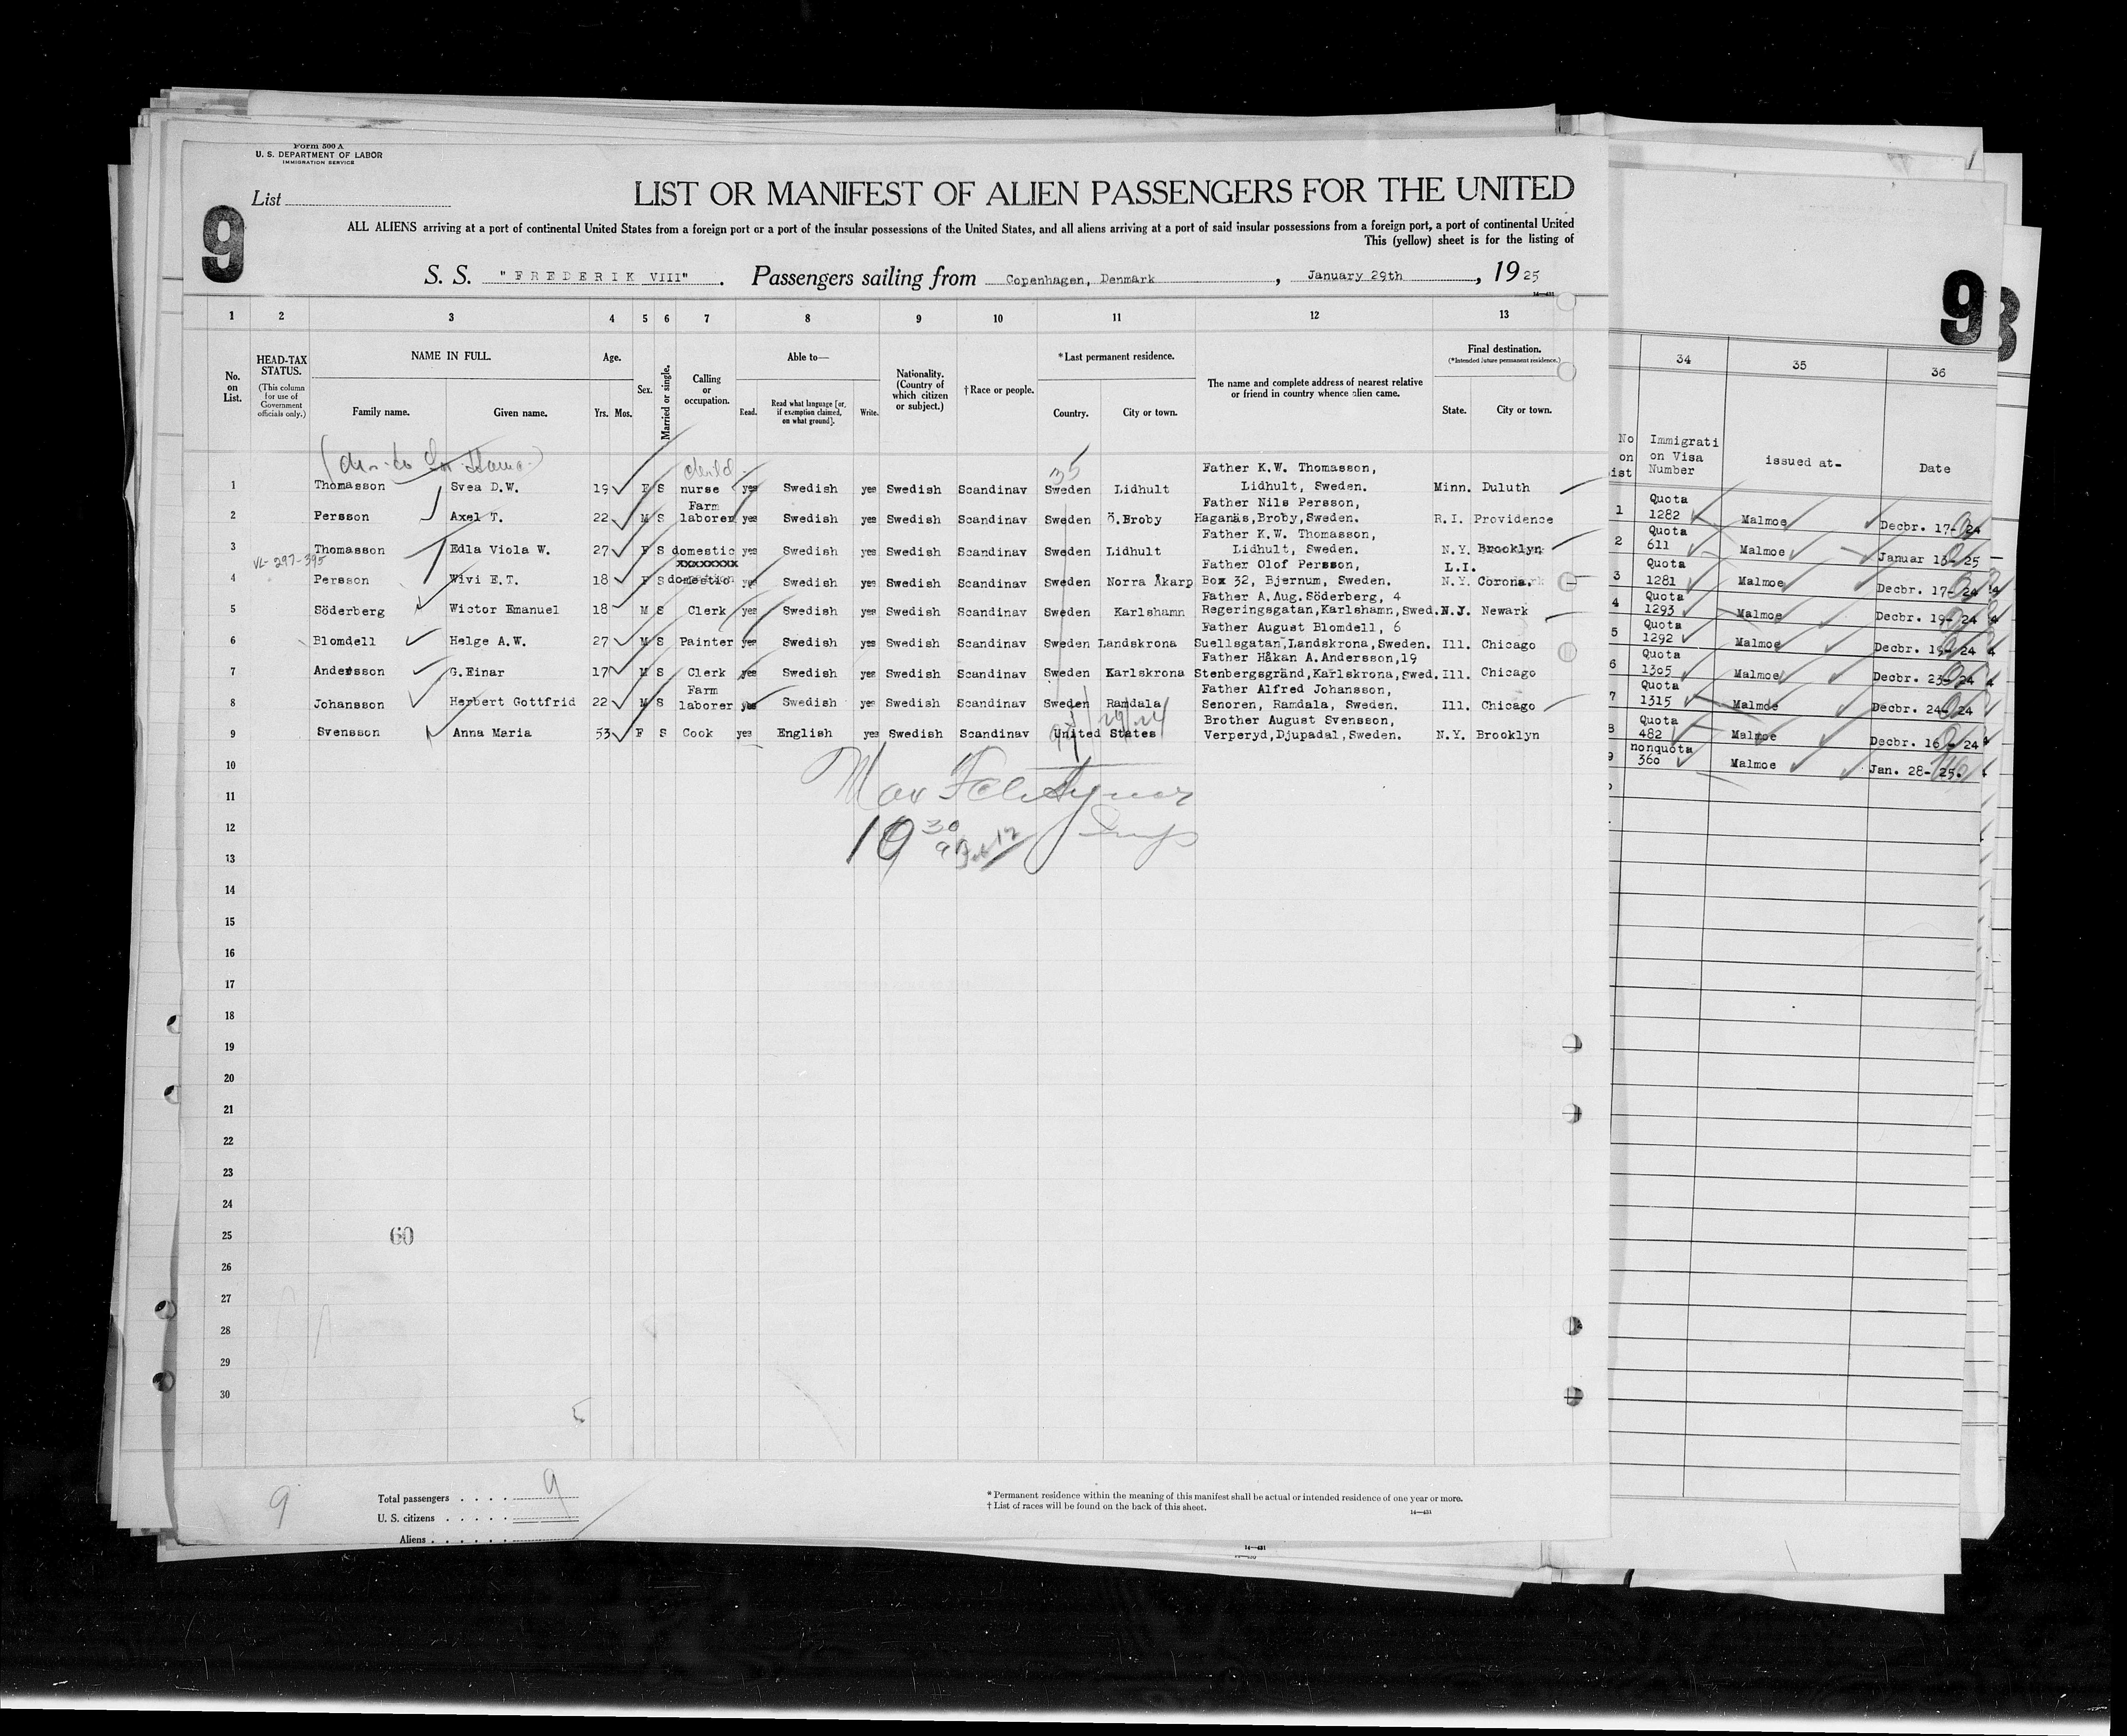 Form 500 A
U. S. DEPARTMENT OF LABOR
IMMIGRATION SERVICE
List
9
LIST OR MANIFEST OF ALIEN PASSENGERS FOR THE UNITED
ALL ALIENS arriving at a port of continental United States from a foreign port or a port of the insular possessions of the United States, and all aliens arriving at a port of said insular possessions from a foreign port, a port of continental United
This (yellow) sheet is for the listing of
S. S. "FREDERIK VIII". Passengers sailing from Copenhagen, Denmark, January 29th, 1925
14—431
1 2 3 4 5 6 7 8 9 10 11 12 13
No. on List.
HEAD-TAX STATUS.
(This column for use of Government officials only.)
NAME IN FULL.
Family name. Given name.
Age.
Yrs. Mos.
Sex.
Married or single.
Calling or occupation.
Able to—
Read. Read what language [or, if exemption claimed, on what ground]. Write.
Nationality. (Country of which citizen or subject.)
†Race or people.
*Last permanent residence.
Country. City or town.
The name and complete address of nearest relative or friend in country whence alien came.
Final destination.
(*Intended future permanent residence.)
State. City or town.
35
child
Father K.W. Thomasson,
1 Thomasson Svea D.W. 19 F S nurse yes Swedish yes Swedish Scandinav Sweden Lidhult Lidhult, Sweden. Minn. Duluth
Farm Father Nils Persson,
2 Persson Axel T. 22 M S laborer yes Swedish yes Swedish Scandinav Sweden Ö.Broby Haganäs,Broby,Sweden. R.I. Providence
Father K.W. Thomasson,
3 Thomasson Edla Viola W. 27 F S domestic yes Swedish yes Swedish Scandinav Sweden Lidhult Lidhult, Sweden. N.Y. Brooklyn
VL-297-395
xxxxxxxx Father Olof Persson, L.I.
4 Persson Wivi E.T. 18 F S domestic yes Swedish yes Swedish Scandinav Sweden Norra Åkarp Box 32, Bjernum, Sweden. N.Y. Corona.
Father A.Aug.Söderberg, 4
5 Söderberg Wictor Emanuel 18 M S Clerk yes Swedish yes Swedish Scandinav Sweden Karlshamn Regeringsgatan,Karlshamn,Swed. N.J. Newark
Father August Blomdell, 6
6 Blomdell Helge A.W. 27 M S Painter yes Swedish yes Swedish Scandinav Sweden Landskrona Suellsgatan,Landskrona,Sweden. Ill. Chicago
Father Håkan A.Andersson,19
7 Andersson G.Einar 17 M S Clerk yes Swedish yes Swedish Scandinav Sweden Karlskrona Stenbergsgränd,Karlskrona,Swed. Ill. Chicago
Farm Father Alfred Johansson,
8 Johansson Herbert Gottfrid 22 M S laborer yes Swedish yes Swedish Scandinav Sweden Ramdala Senoren, Ramdala, Sweden. Ill. Chicago
Brother August Svensson,
9 Svensson Anna Maria 53 F S Cook yes English yes Swedish Scandinav United States Verperyd,Djupadal,Sweden. N.Y. Brooklyn
10
11
12
13
14
15
16
17
18
19
20
21
22
23
24
25 60
26
27
28
29
30
9
Total passengers . . . . 9
U. S. citizens . . . . .
Aliens . . . . . .
* Permanent residence within the meaning of this manifest shall be actual or intended residence of one year or more.
† List of races will be found on the back of this sheet.
14—431
14—431
9
34 35 36
No on ist
Immigrati on Visa Number
issued at-
Date
1 Quota 1282 Malmoe Decbr. 17- 24
2 Quota 611 Malmoe Januar 13- 25
3 Quota 1281 Malmoe Decbr. 17- 24
4 Quota 1293 Malmoe Decbr. 19- 24
5 Quota 1292 Malmoe Decbr. 19- 24
6 Quota 1305 Malmoe Decbr. 23- 24
7 Quota 1315 Malmoe Decbr. 24- 24
8 Quota 482 Malmoe Decbr. 16 - 24
9 nonquota 360 Malmoe Jan. 28- 25.